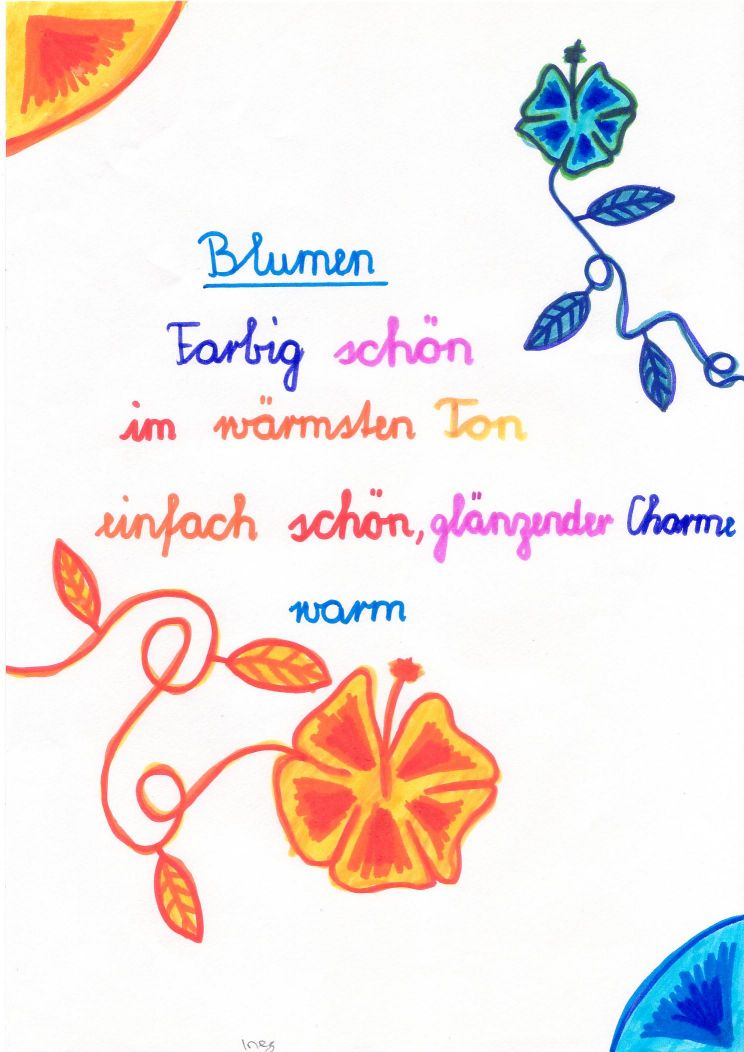 Blumen
Farbig schön
im wärmsten Ton
einfach schön, glänzender Charme
warm
Ines